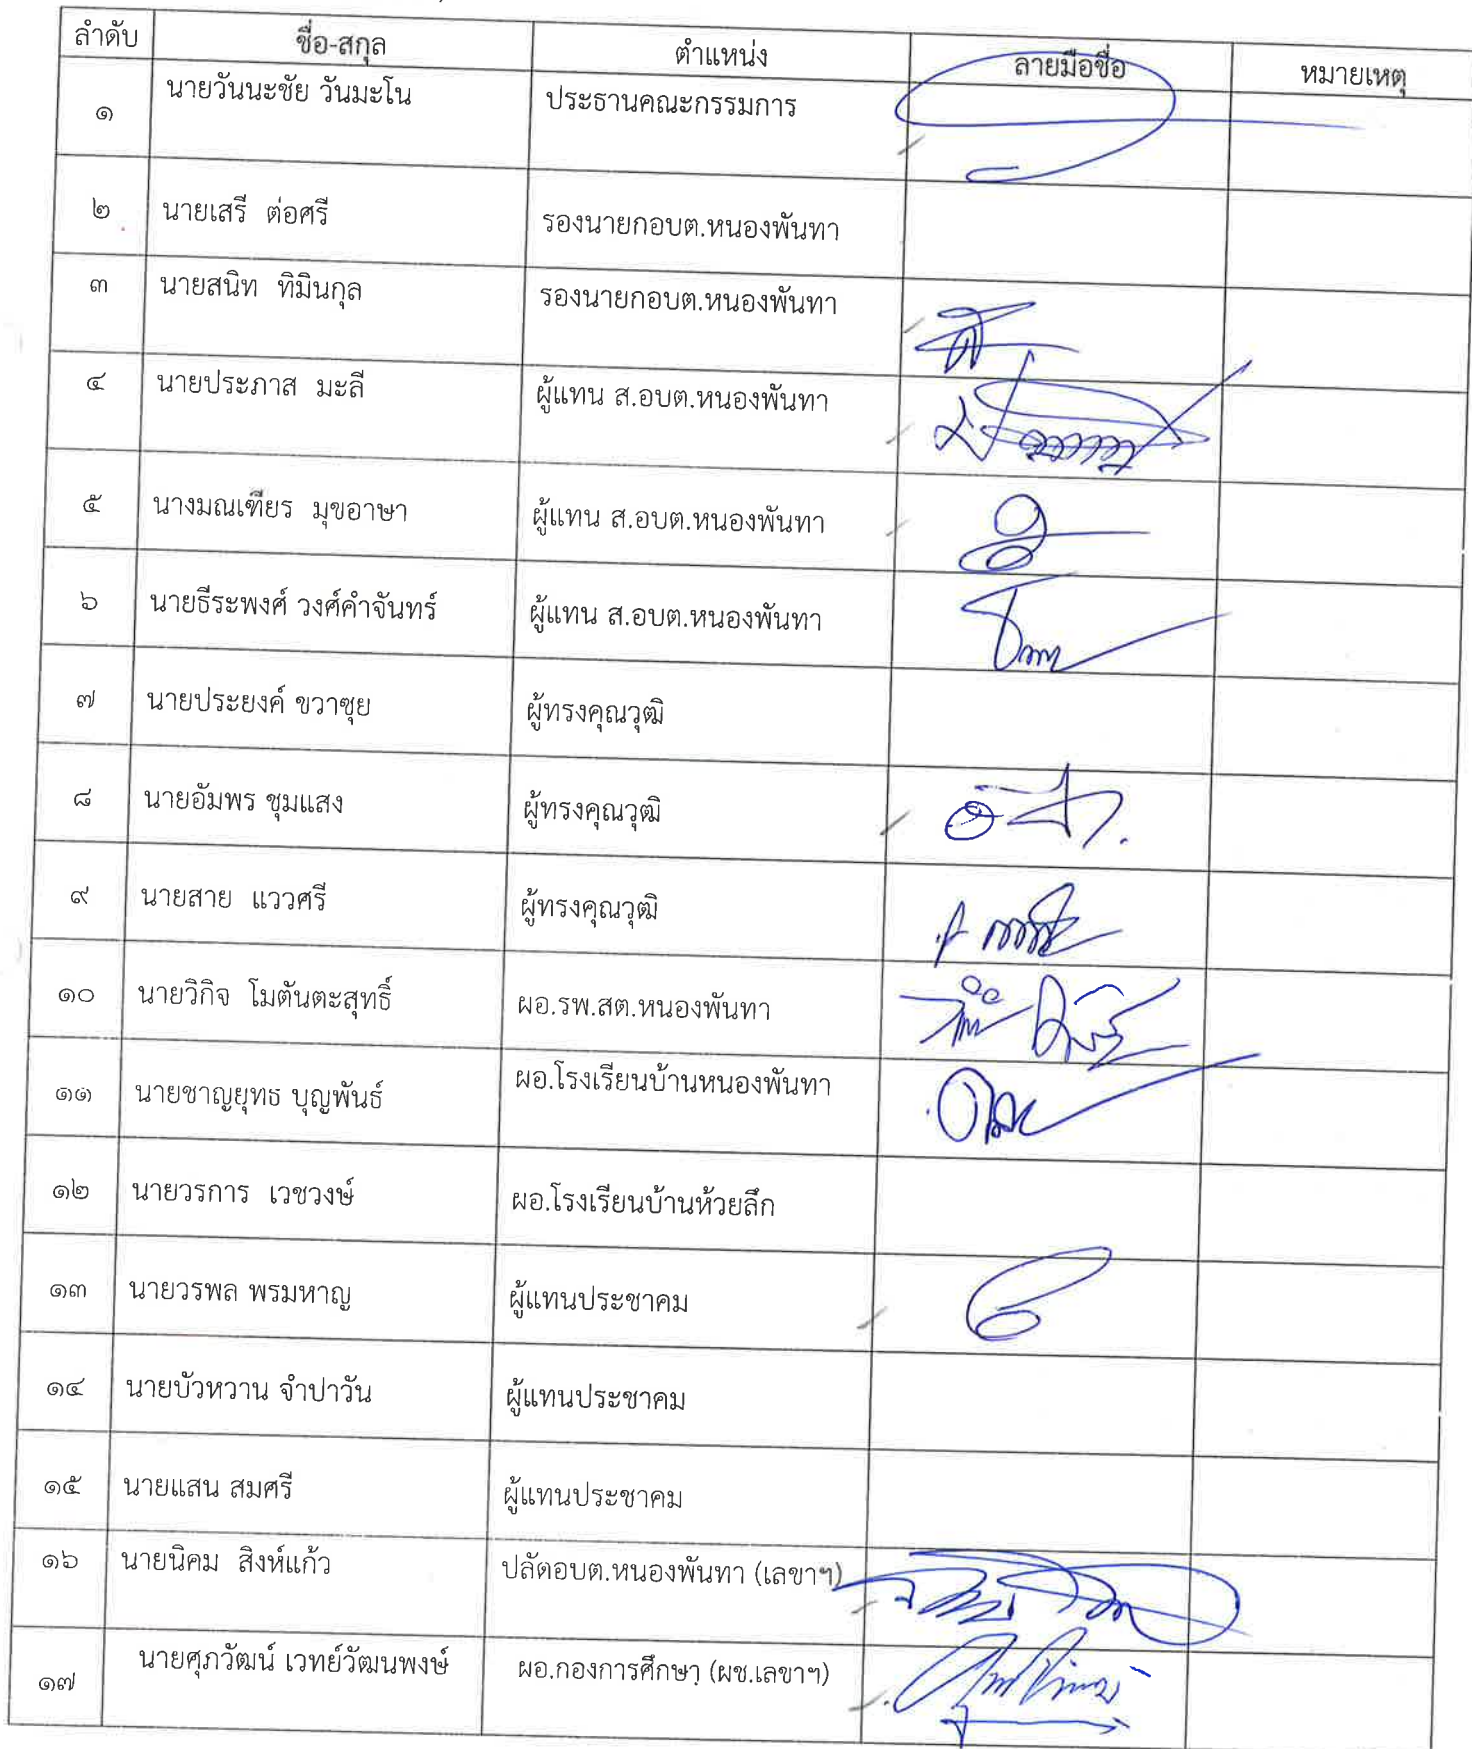 ลำดับ ชื่อ-สกุล ตำแหน่ง ลายมือชื่อ หมายเหตุ
๑ นายวันนะชัย วันมะโน ประธานคณะกรรมการ
๒ นายเสรี ต่อศรี รองนายกอบต.หนองพันทา
๓ นายสนิท ทิมินกุล รองนายกอบต.หนองพันทา
๔ นายประภาส มะลี ผู้แทน ส.อบต.หนองพันทา
๕ นางมณเฑียร มุขอาษา ผู้แทน ส.อบต.หนองพันทา
๖ นายธีระพงศ์ วงศ์คำจันทร์ ผู้แทน ส.อบต.หนองพันทา
๗ นายประยงค์ ขวาซุย ผู้ทรงคุณวุฒิ
๘ นายอัมพร ชุมแสง ผู้ทรงคุณวุฒิ
๙ นายสาย แววศรี ผู้ทรงคุณวุฒิ
๑๐ นายวิกิจ โมตันตะสุทธิ์ ผอ.รพ.สต.หนองพันทา
๑๑ นายชาญยุทธ บุญพันธ์ ผอ.โรงเรียนบ้านหนองพันทา
๑๒ นายวรการ เวชวงษ์ ผอ.โรงเรียนบ้านห้วยลึก
๑๓ นายวรพล พรมหาญ ผู้แทนประชาคม
๑๔ นายบัวหวาน จำปาวัน ผู้แทนประชาคม
๑๕ นายแสน สมศรี ผู้แทนประชาคม
๑๖ นายนิคม สิงห์แก้ว ปลัดอบต.หนองพันทา (เลขาฯ)
๑๗ นายศุภวัฒน์ เวทย์วัฒนพงษ์ ผอ.กองการศึกษา (ผช.เลขาฯ)